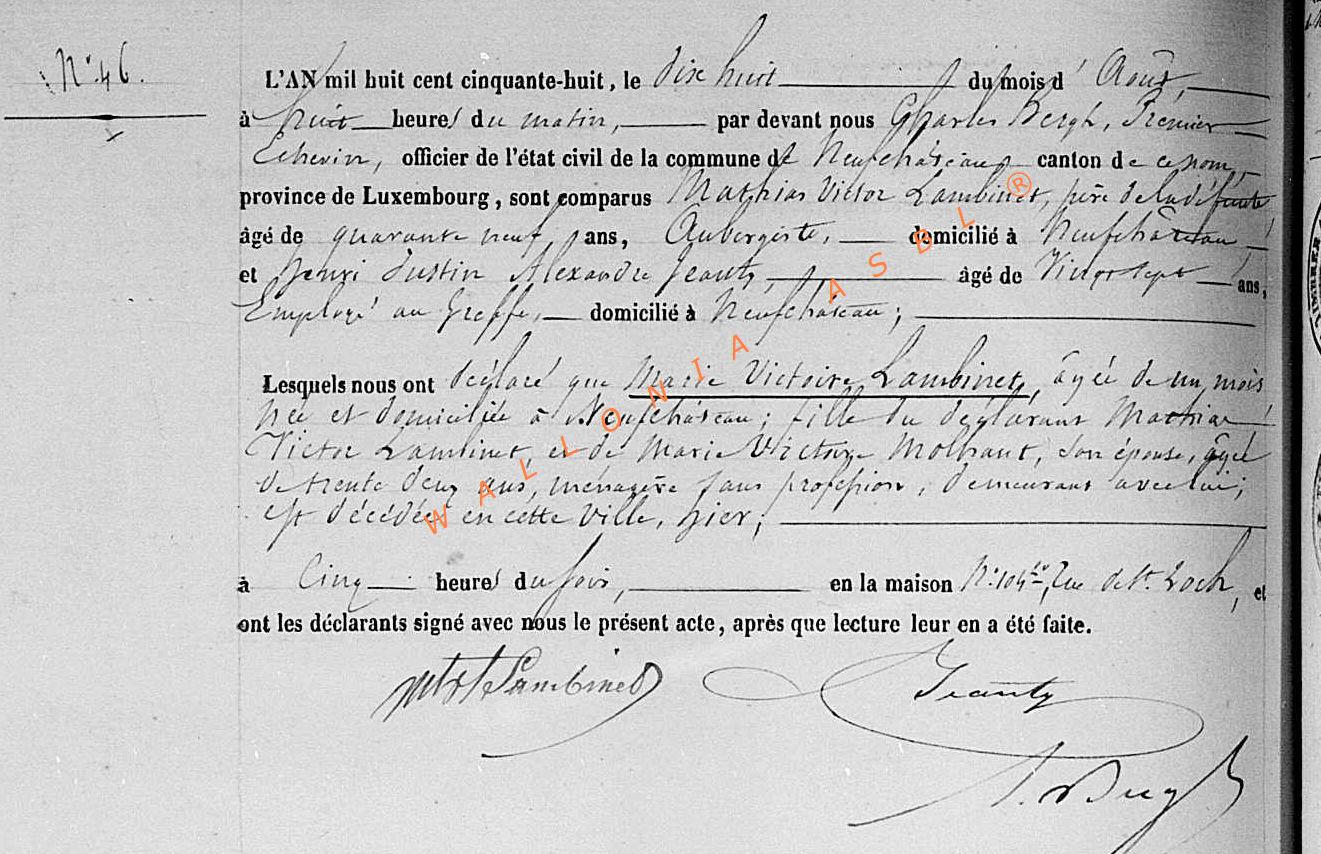 N° 46.
L'AN mil huit cent cinquante-huit, le dix huit du mois d' Août,
à huit heures du matin, par devant nous Charles Bergh, Premier
Echevin, officier de l'état civil de la commune de Neufchâteau canton de ce nom,
province de Luxembourg, sont comparus Mathias Victor Lambinet, père de la défunte,
âgé de quarante neuf ans, Aubergiste, domicilié à Neufchâteau
et Henri Justin Alexandre Jeanty, âgé de Vingt sept ans,
Employé au Greffe, domicilié à Neufchâteau;
Lesquels nous ont déclaré que Marie Victoire Lambinet, âgée de un mois
née et domiciliée à Neufchâteau; fille du déclarant Mathias
Victor Lambinet, et de Marie Victoire Molhant, son épouse, âgée
de trente deux ans, ménagère sans profession, demeurant avec lui;
est décédée en cette Ville, hier;
à Cinq heures du soir, en la maison N° 104, Rue de St. Roch, et
ont les déclarants signé avec nous le présent acte, après que lecture leur en a été faite.
Lambinet
Jeanty
Bergh
WALLONIA ASBL ®